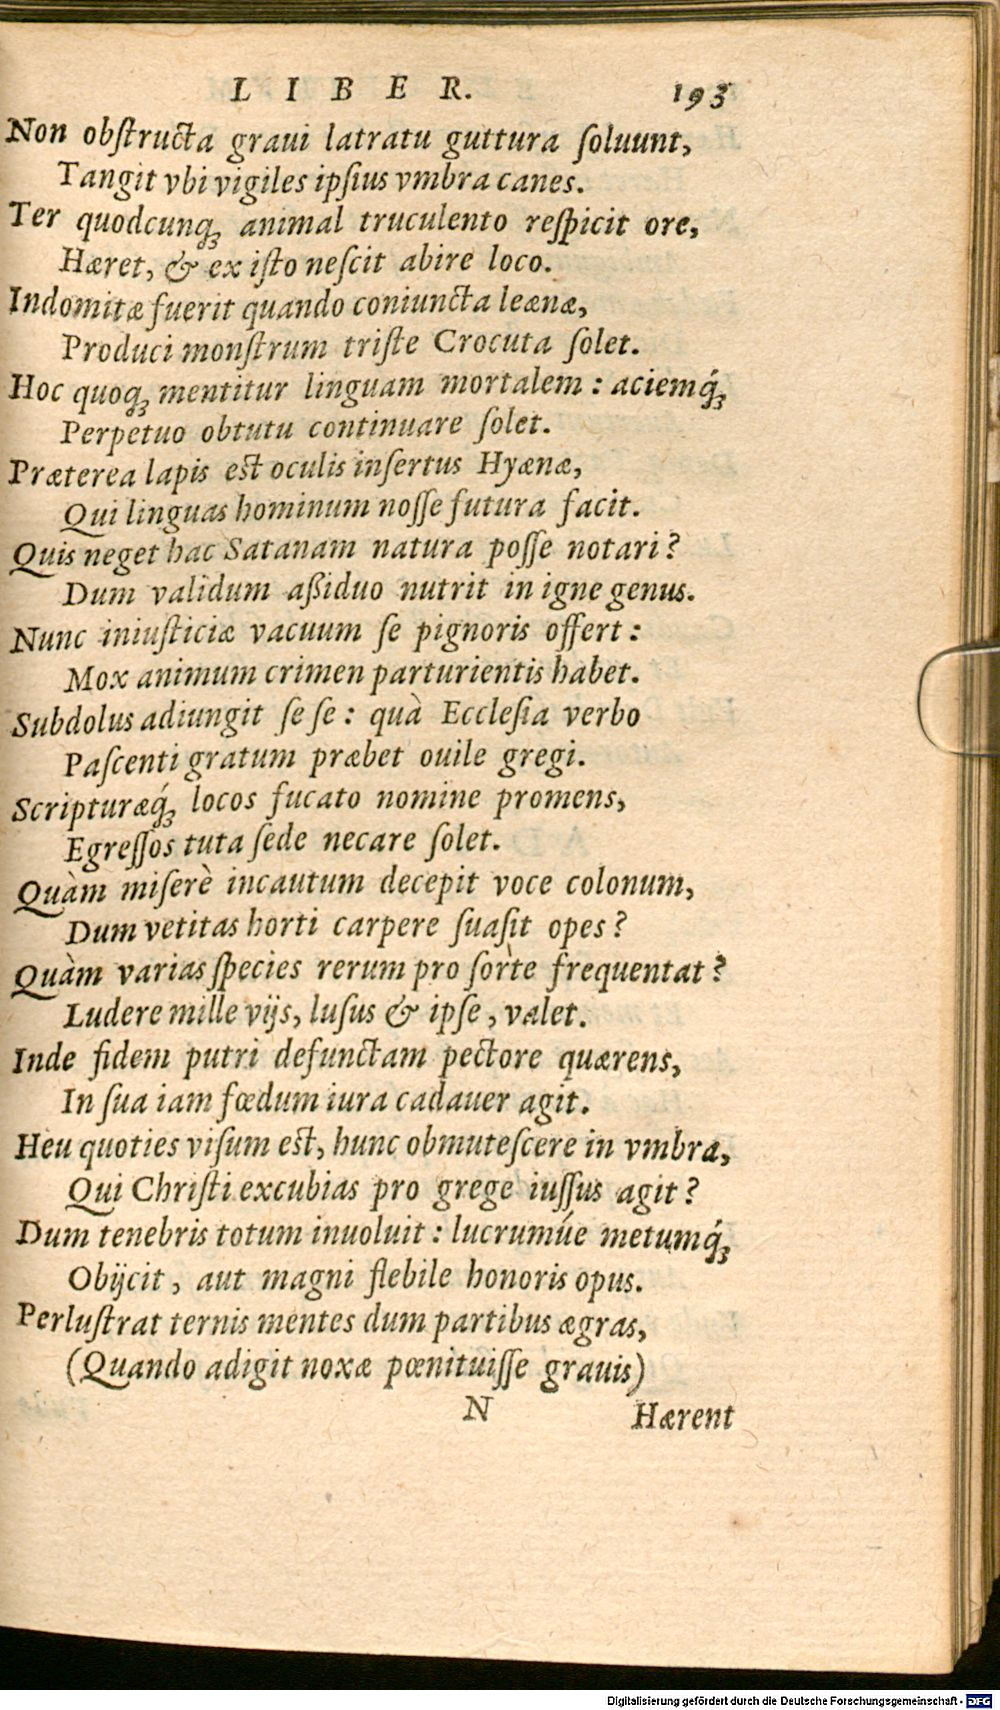 LIBER. 193
Non obſtructa graui latratu guttura ſoluunt,
Tangit vbi vigiles ipſius vmbra canes.
Ter quodcunq; animal truculento reſpicit ore,
Hæret, & ex iſto neſcit abire loco.
Indomitæ fuerit quando coniuncta leænæ,
Produci monſtrum triſte Crocuta ſolet.
Hoc quoq; mentitur linguam mortalem : aciemq́;
Perpetuo obtutu continuare ſolet.
Præterea lapis eſt oculis inſertus Hyænæ,
Qui linguas hominum noſſe futura facit.
Quis neget hac Satanam natura poſſe notari?
Dum validum aßiduo nutrit in igne genus.
Nunc iniuſticiæ vacuum ſe pignoris offert :
Mox animum crimen parturientis habet.
Subdolus adiungit ſe ſe : quà Eccleſia verbo
Paſcenti gratum præbet ouile gregi.
Scripturæq́; locos fucato nomine promens,
Egreſſos tuta ſede necare ſolet.
Quàm miſerè incautum decepit voce colonum,
Dum vetitas horti carpere ſuaſit opes?
Quàm varias ſpecies rerum pro ſorte frequentat?
Ludere mille vijs, luſus & ipſe, valet.
Inde fidem putri defunctam pectore quærens,
In ſua iam fœdum iura cadauer agit.
Heu quoties viſum eſt, hunc obmuteſcere in vmbra,
Qui Chriſti excubias pro grege iuſſus agit?
Dum tenebris totum inuoluit : lucrumúe metumq́;
Obijcit, aut magni flebile honoris opus.
Perluſtrat ternis mentes dum partibus ægras,
(Quando adigit noxæ pœnituiſſe grauis)
N Hærent
Digitalisierung gefördert durch die Deutsche Forschungsgemeinschaft - DFG